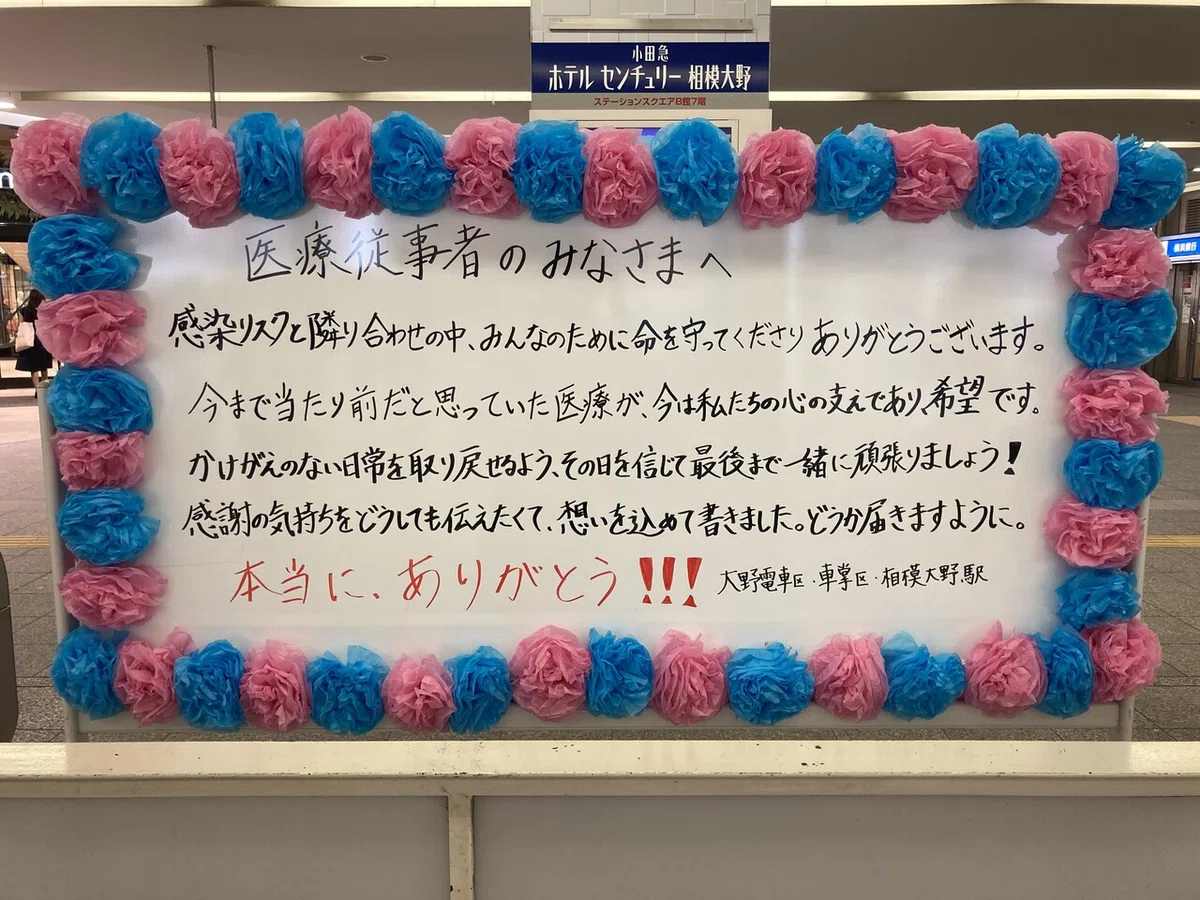 小田急
ホテル センチュリー 相模大野
ステーションスクエアB館7階
横浜銀行
医療従事者のみなさまへ
感染リスクと隣り合わせの中、みんなのために命を守ってくださりありがとうございます。
今まで当たり前だと思っていた医療が、今は私たちの心の支えであり、希望です。
かけがえのない日常を取り戻せるよう、その日を信じて最後まで一緒に頑張りましょう!
感謝の気持ちをどうしても伝えたくて、想いを込めて書きました。どうか届きますように。
本当に、ありがとう!!! 大野電車区・車掌区・相模大野駅